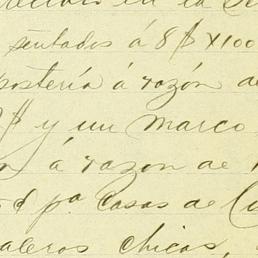 en la
sentados á 8$ x100
postería á razón de
$ y un marco
á razon de
d pª Casas de
aleros chicos,